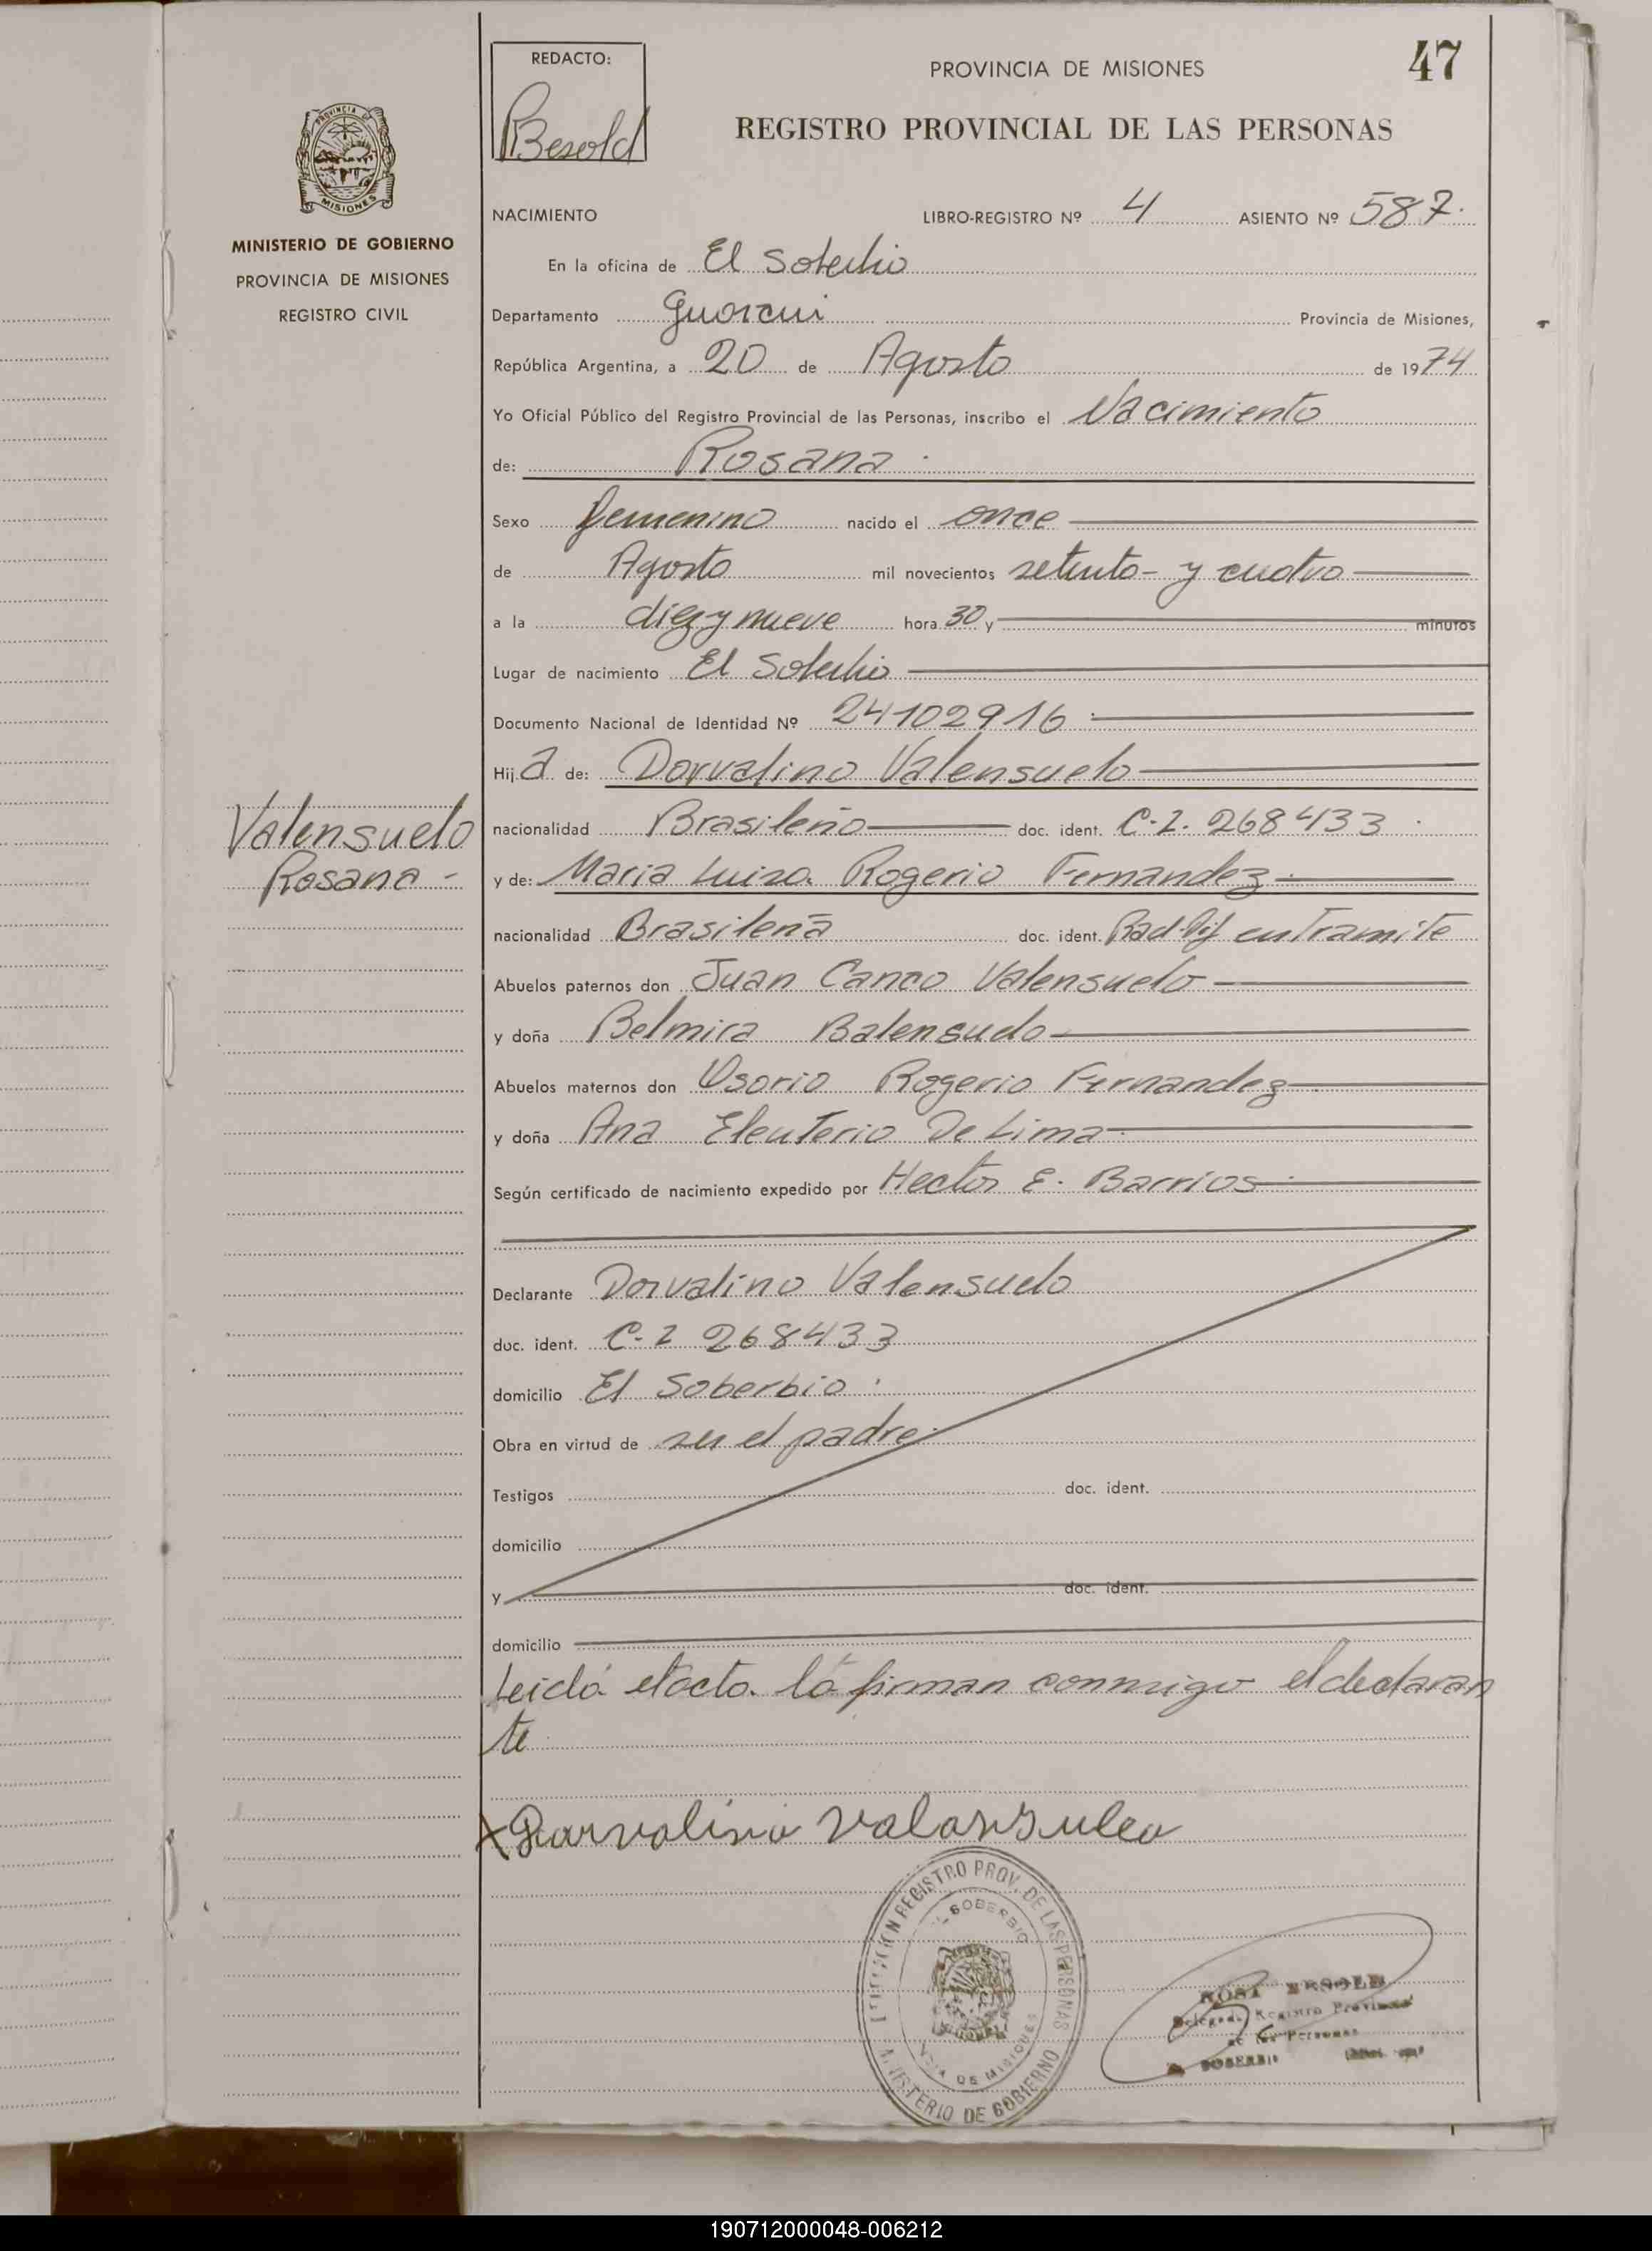 47
REDACTO:
Besold
PROVINCIA DE MISIONES
REGISTRO PROVINCIAL DE LAS PERSONAS
PROVINCIA DE
MISIONES
MINISTERIO DE GOBIERNO
PROVINCIA DE MISIONES
REGISTRO CIVIL
NACIMIENTO LIBRO-REGISTRO Nº 4 ASIENTO Nº 587.
En la oficina de El Soberbio
Departamento Guarani Provincia de Misiones,
República Argentina, a 20 de Agosto de 1974
Yo Oficial Público del Registro Provincial de las Personas, inscribo el Nacimiento
de: Rosana
Sexo femenino nacido el once
de Agosto mil novecientos setenta y cuatro
a la diez y nueve hora 30 y minutos
Lugar de nacimiento El Soberbio
Documento Nacional de Identidad Nº 24102916
Hija de: Dorvalino Valensuelo
Valensuelo
Rosana -
nacionalidad Brasileño doc. ident. C.I. 268433
y de: Maria Luisa Rogerio Fernandez
nacionalidad Brasileña doc. ident. en Tramite
Abuelos paternos don Juan Canco Valensuelo
y doña Belmira Balensuelo
Abuelos maternos don Osorio Rogerio Fernandez
y doña Ana Eleuterio De Lima
Según certificado de nacimiento expedido por Hector E. Barrios
Declarante Dorvalino Valensuelo
doc. ident. C.I 268433
domicilio El Soberbio
Obra en virtud de ser el padre
Testigos doc. ident.
domicilio
y doc. ident.
domicilio
Leida el acta la firman conmigo el declaran
te
REGISTRO PROV. DE LAS PERSONAS
EL SOBERBIO
DE MISIONES
MINISTERIO DE GOBIERNO
ROSA
Registro Provincial
de las Personas
SOBERBIO
190712000048-006212